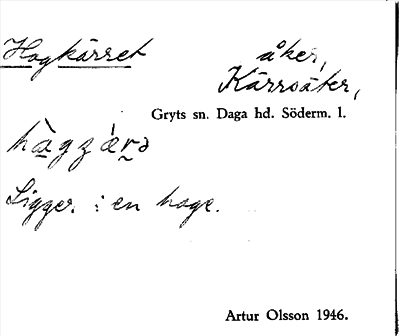 Hagkärret åker,
Kärrsäter,
Gryts sn. Daga hd. Söderm. l.
Ligger i en hage.
Artur Olsson 1946.